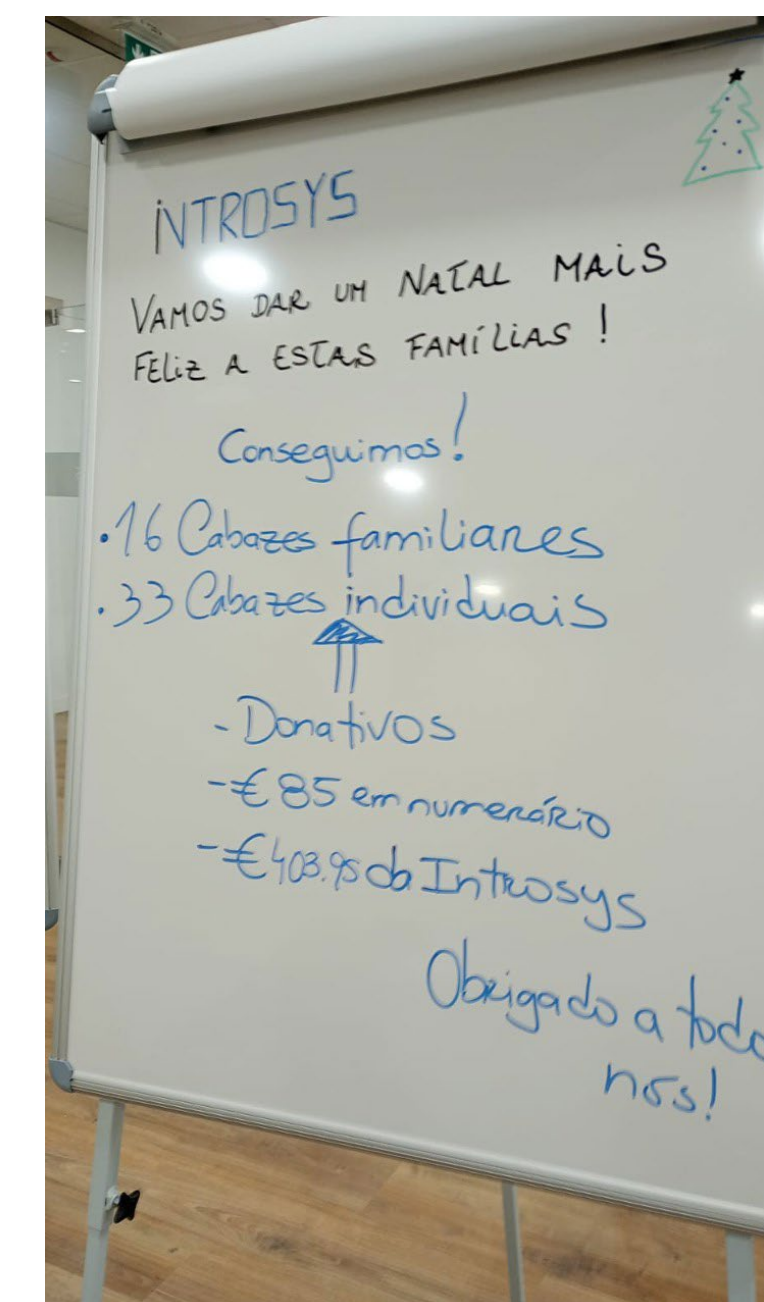 iNTROSYS
VAMOS DAR UM NATAL MAiS
FELiZ A ESTAS FAMíLiAS !
Conseguimos!
.16 Cabazes familiares
.33 Cabazes individuais
- Donativos
-€ 85 em numerário
-€403.95 da Introsys
Obrigado a todo
nós!